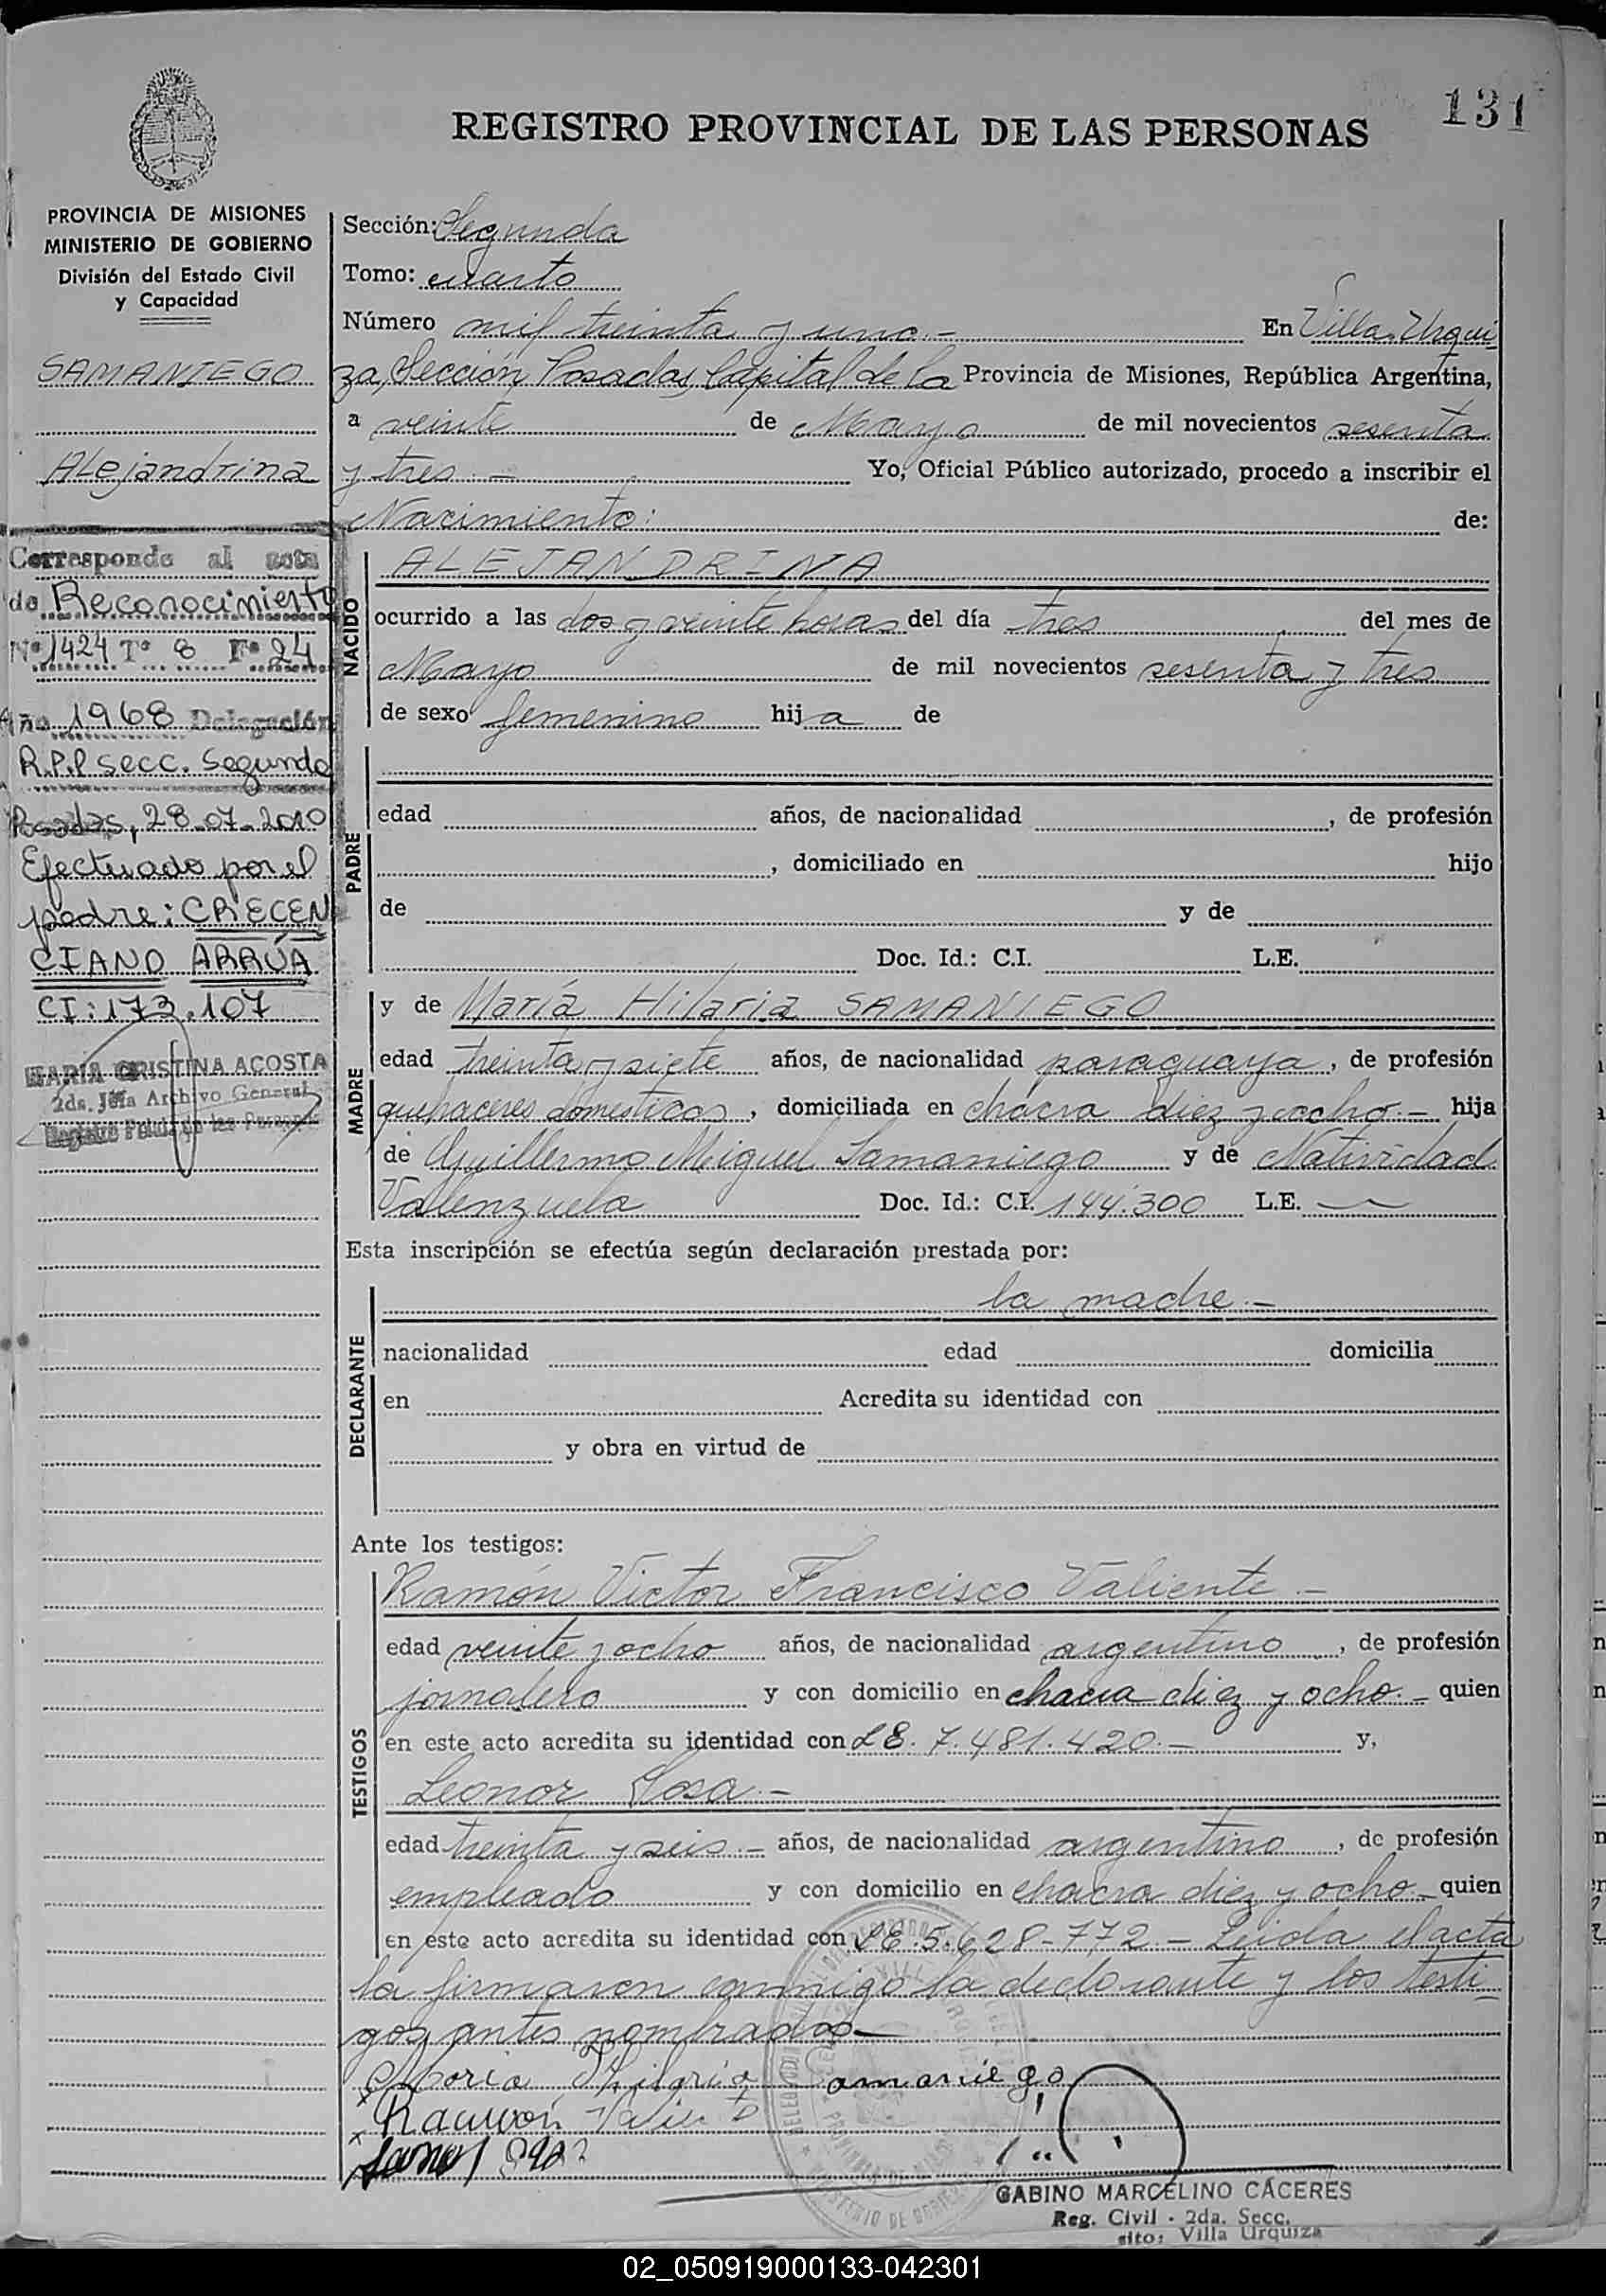 131
REGISTRO PROVINCIAL DE LAS PERSONAS
PROVINCIA DE MISIONES
MINISTERIO DE GOBIERNO
División del Estado Civil
y Capacidad
SAMANIEGO
Alejandrina
Corresponde al acta
de Reconocimiento
Nº 1424 Tº 8 Fº 24
Año 1968 Delegación
R.P.P secc. Segunda
Posadas, 28-07-2010
Efectuado por el
padre: CRECEN
CIANO ARRÚA
CI: 173.107
MARIA CRISTINA ACOSTA
2da. Jefa Archivo General
Registro de las Personas
Sección: Segunda
Tomo: cuarto
Número mil treinta y uno.- En Villa Urqui
za, Sección Posadas, Capital de la Provincia de Misiones, República Argentina,
a veinte de Mayo de mil novecientos sesenta
y tres.- Yo, Oficial Público autorizado, procedo a inscribir el
Nacimiento: de:
NACIDO
ALEJANDRINA
ocurrido a las dos y veinte horas del día tres del mes de
Mayo de mil novecientos sesenta y tres
de sexo femenino hija de
PADRE
edad años, de nacionalidad , de profesión
, domiciliado en hijo
de y de
Doc. Id.: C.I. L.E.
MADRE
y de María Hilaria SAMANIEGO
edad treinta y siete años, de nacionalidad paraguaya, de profesión
quehaceres domesticos, domiciliada en chacra diez y ocho.- hija
de Guillermo Miguel Samaniego y de Natividad
Valenzuela Doc. Id.: C.I. 144.300 L.E. —
Esta inscripción se efectúa según declaración prestada por:
DECLARANTE
la madre.-
nacionalidad edad domicilia
en Acredita su identidad con
y obra en virtud de
Ante los testigos:
TESTIGOS
Ramón Victor Francisco Valiente.-
edad veinte y ocho años, de nacionalidad argentino, de profesión
jornalero y con domicilio en chacra diez y ocho.- quien
en este acto acredita su identidad con LE. 7.481.420.- y,
Leonor Sosa.-
edad treinta y seis.- años, de nacionalidad argentino, de profesión
empleado y con domicilio en chacra diez y ocho.- quien
en este acto acredita su identidad con LE. 5.628-772.- Leida el acta
la firmaron conmigo la declarante y los testi
gos antes nombrados.-
Maria Hilaria Samaniego
x Ramón
x
GABINO MARCELINO CÁCERES
Reg. Civil - 2da. Secc.
sito: Villa Urquiza
02_050919000133-042301